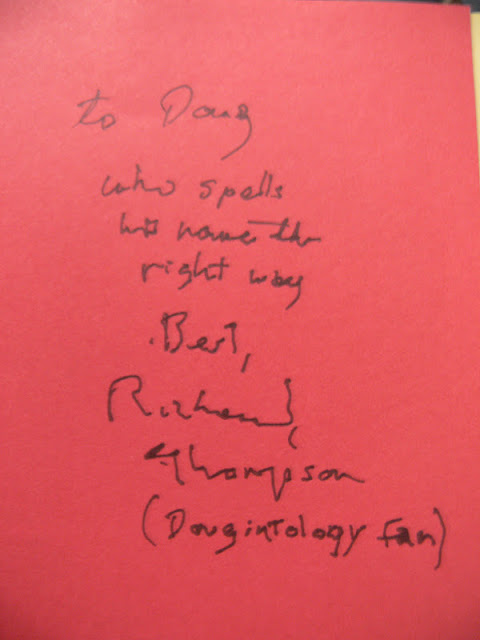 to Doug
who spells
his name the
right way
Best,
Richard
Thompson
(Dougintology fan)